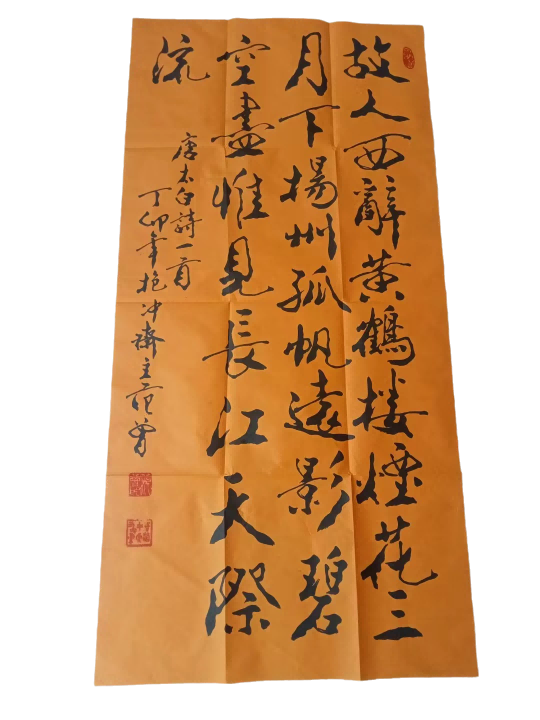 故人西辭黄鶴楼煙花三
月下揚州孤帆遠影碧
空盡惟見長江天際
流
唐太白詩一首
丁卯年抱冲齋主范曾